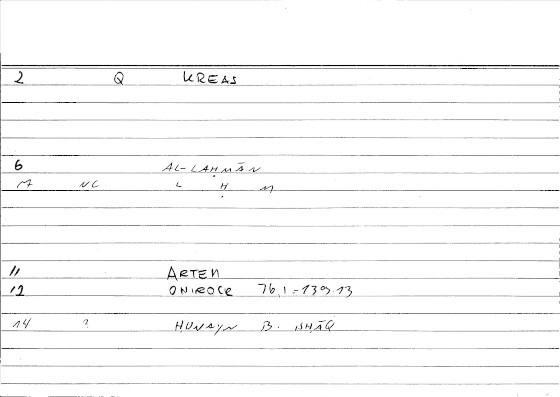 2 Q KREAS
6 AL-LAḤMĀN
M NC L Ḥ M
11 ARTEM
12 ONIROCR 76,1=139.13
14 ? HUNAYN B. ISHĀQ